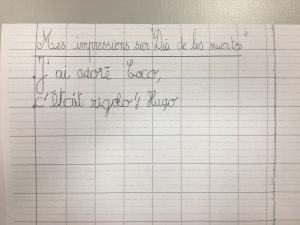 Mes impressions sur "Dià de los muertos"
J'ai adoré Coco,
c'était rigolo ! Hugo